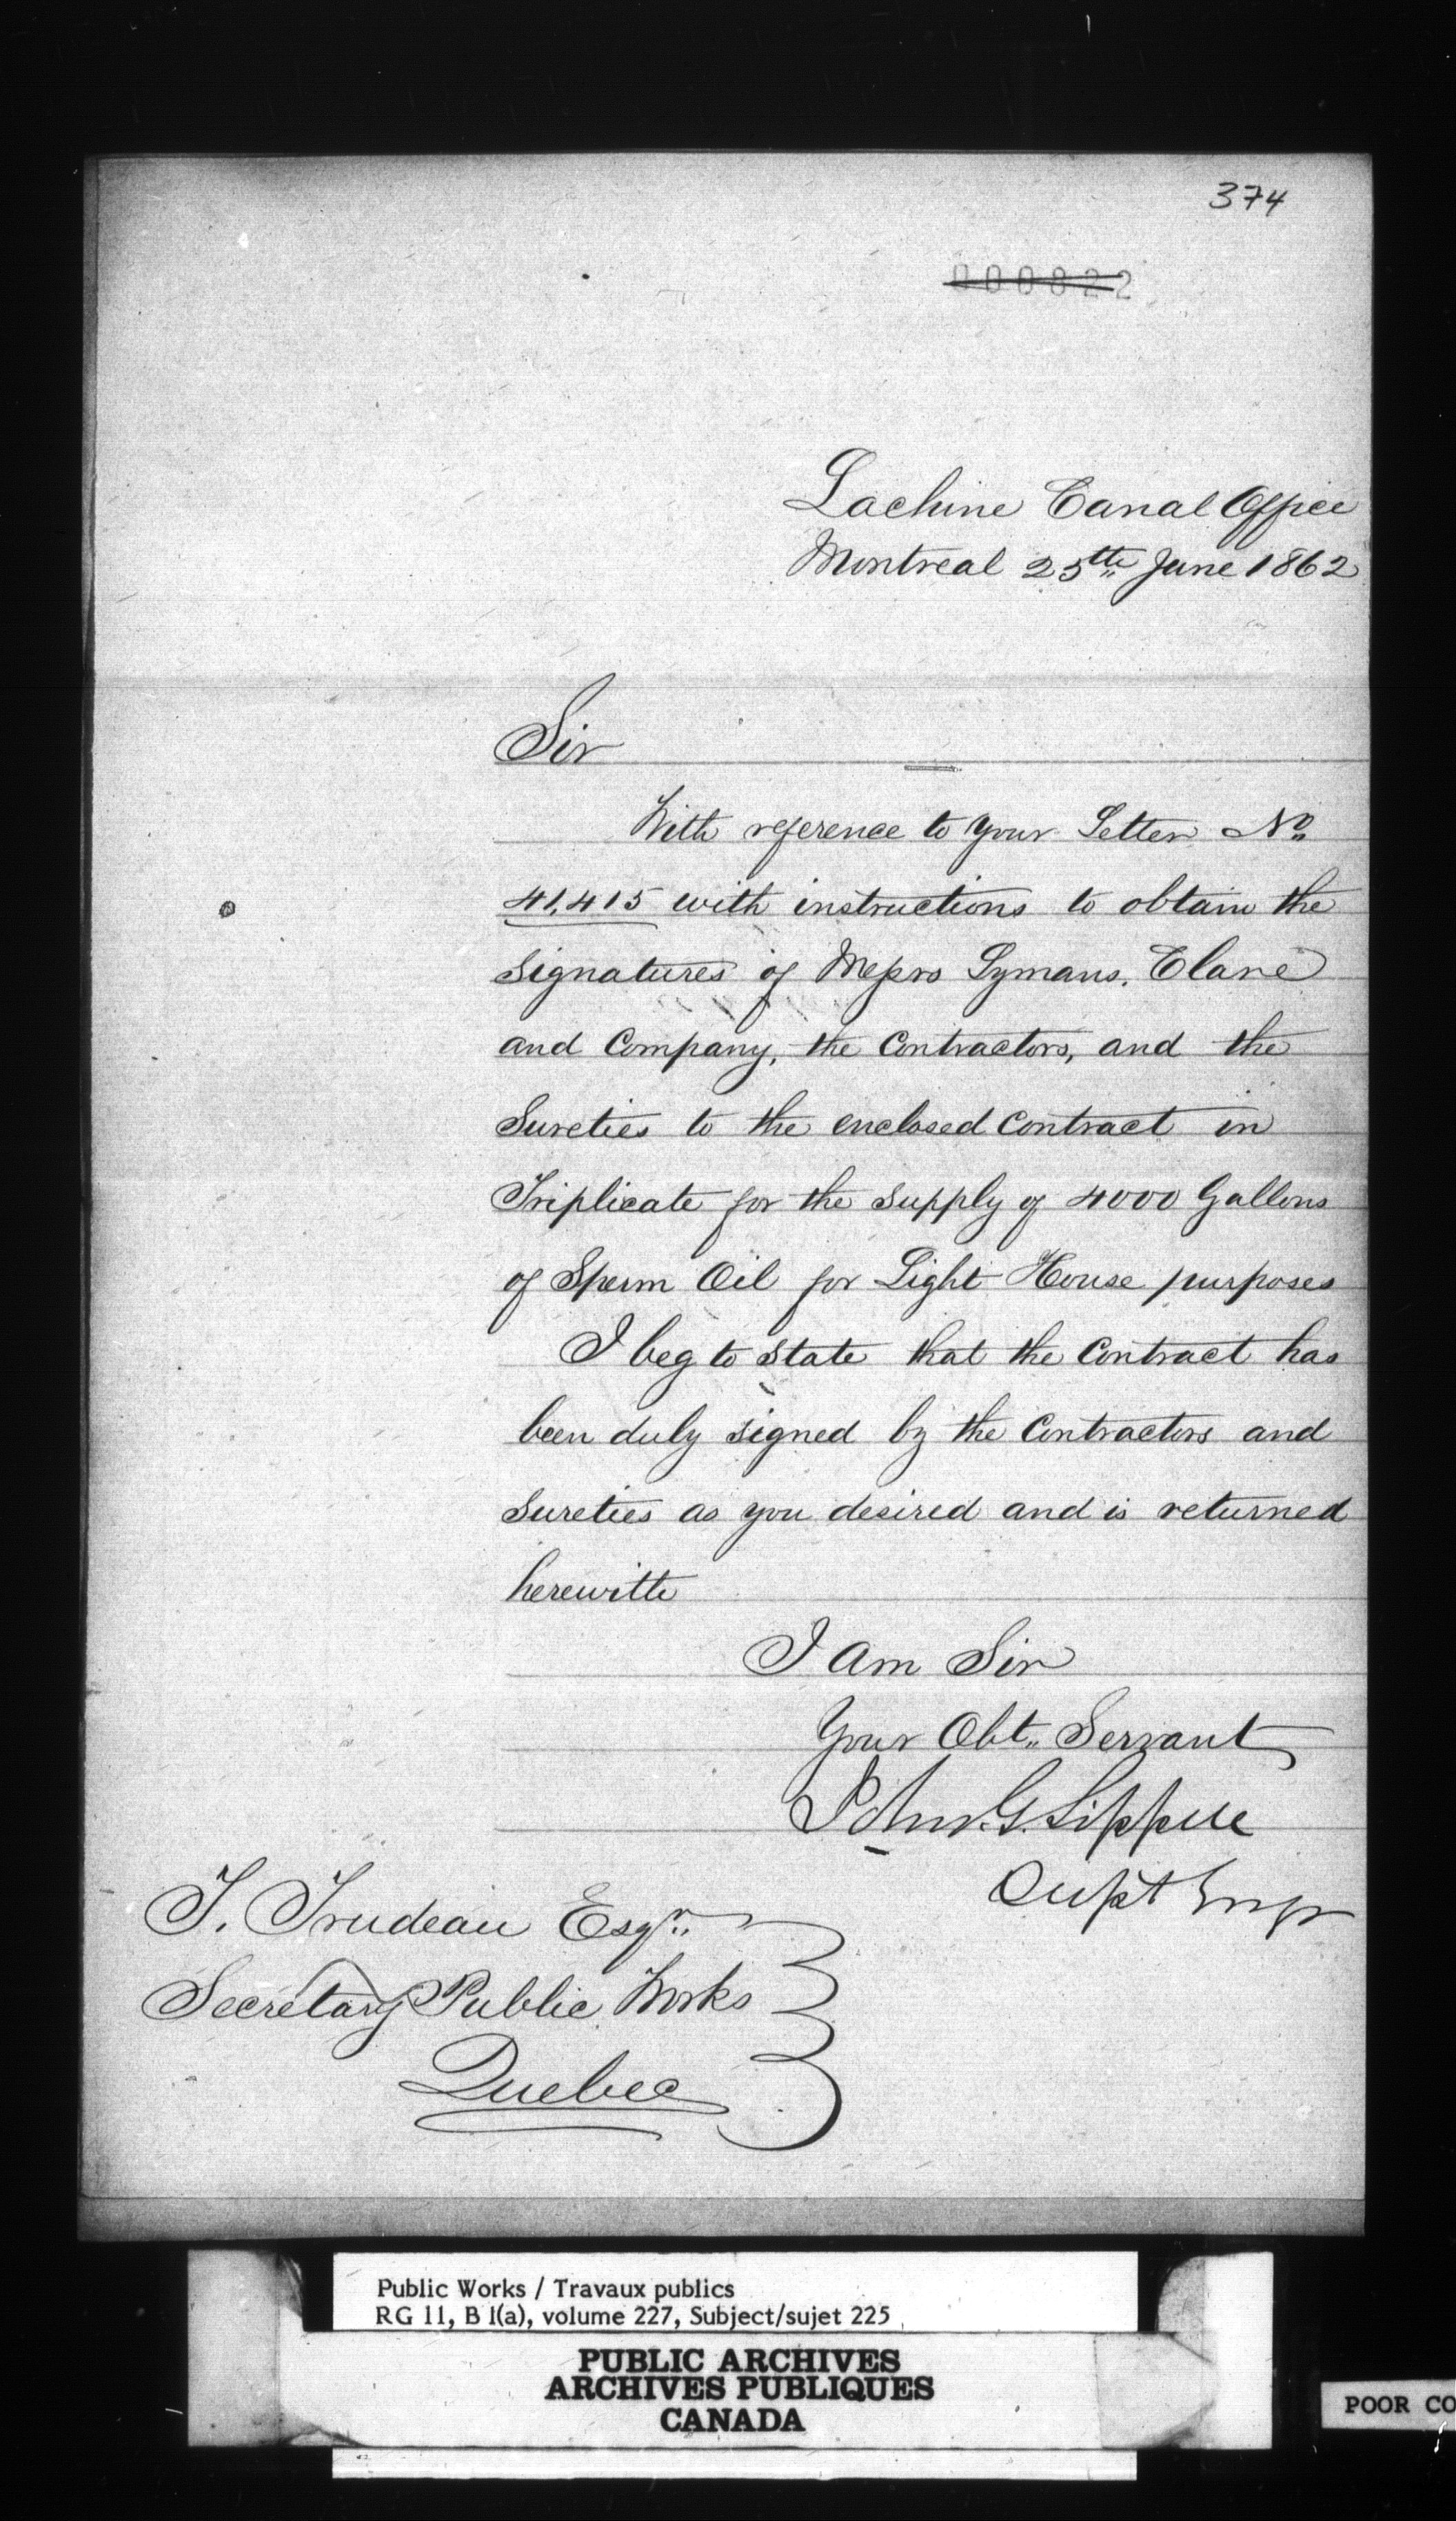 374
000822
Lachine Canal Office
Montreal 25th June 1862
Sir
With reference to your Letter No
41,415 with instructions to obtain the
signatures of Messrs Lymans, Clare
and Company, the Contractors, and the
Sureties to the enclosed Contract in
Triplicate for the supply of 4000 Gallons
of Sperm Oil for Light House purposes
I beg to state that the Contract has
been duly signed by the Contractors and
Sureties as you desired and is returned
herewith
I am Sir
Your Obt. Servant
John G. Sippell
Supt Engr
T. Trudeau Esqr.
Secretary Public Works
Quebec
Public Works / Travaux publics
RG 11, B 1(a), volume 227, Subject/sujet 225
PUBLIC ARCHIVES
ARCHIVES PUBLIQUES
CANADA
POOR CO